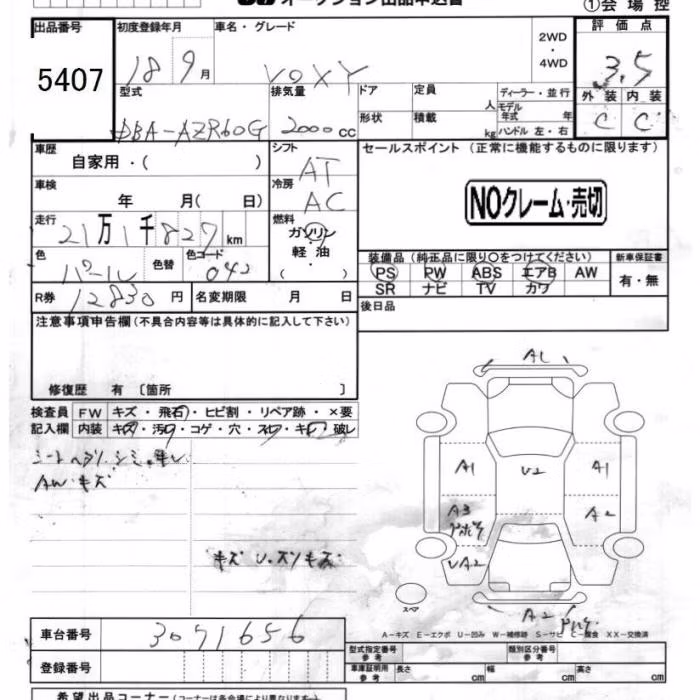 オークション出品申込書
①会場控
出品番号 初度登録年月 車名・グレード 2WD・4WD 評価点
5407 18 9月 VOXY 3.5
型式 排気量 ドア 定員 人 ディーラー・並行 外装 内装
DBA-AZR60G 2000cc 形状 積載 kg モデル年式 年 ハンドル 左・右 C C
車歴 自家用・( ) シフト AT セールスポイント (正常に機能するものに限ります)
車検 年 月( 日) 冷房 AC NOクレーム・売切
走行 21万1千827km 燃料 ガソリン 軽油 ( ・ )
色 パール 色替 色コード 042 装備品 (純正品に限り○をつけてください) 新車保証書
PS PW ABS エアB AW 有・無
SR ナビ TV カワ
R券 12830円 名変期限 月 日 後日品
注意事項申告欄(不具合内容等は具体的に記入して下さい)
修復歴 有 〔箇所 〕
検査員 FW キズ・飛石・ヒビ割・リペア跡・×要
記入欄 内装 キズ・汚れ・コゲ・穴・スレ・キレ・破レ
AW キズ
キズ U
A1
A1 U2 A1
A3 A2
UA2
スペア
A2
A-キズ E-エクボ U-凹み W-補修跡 S-サビ C-腐食 XX-交換済
車台番号 3071656
登録番号
型式指定番号 参考 類別区分番号 参考
車庫証明用 参考 長さ cm 幅 cm 高さ cm
希望出品コーナー(コーナーは各会場により異なります)